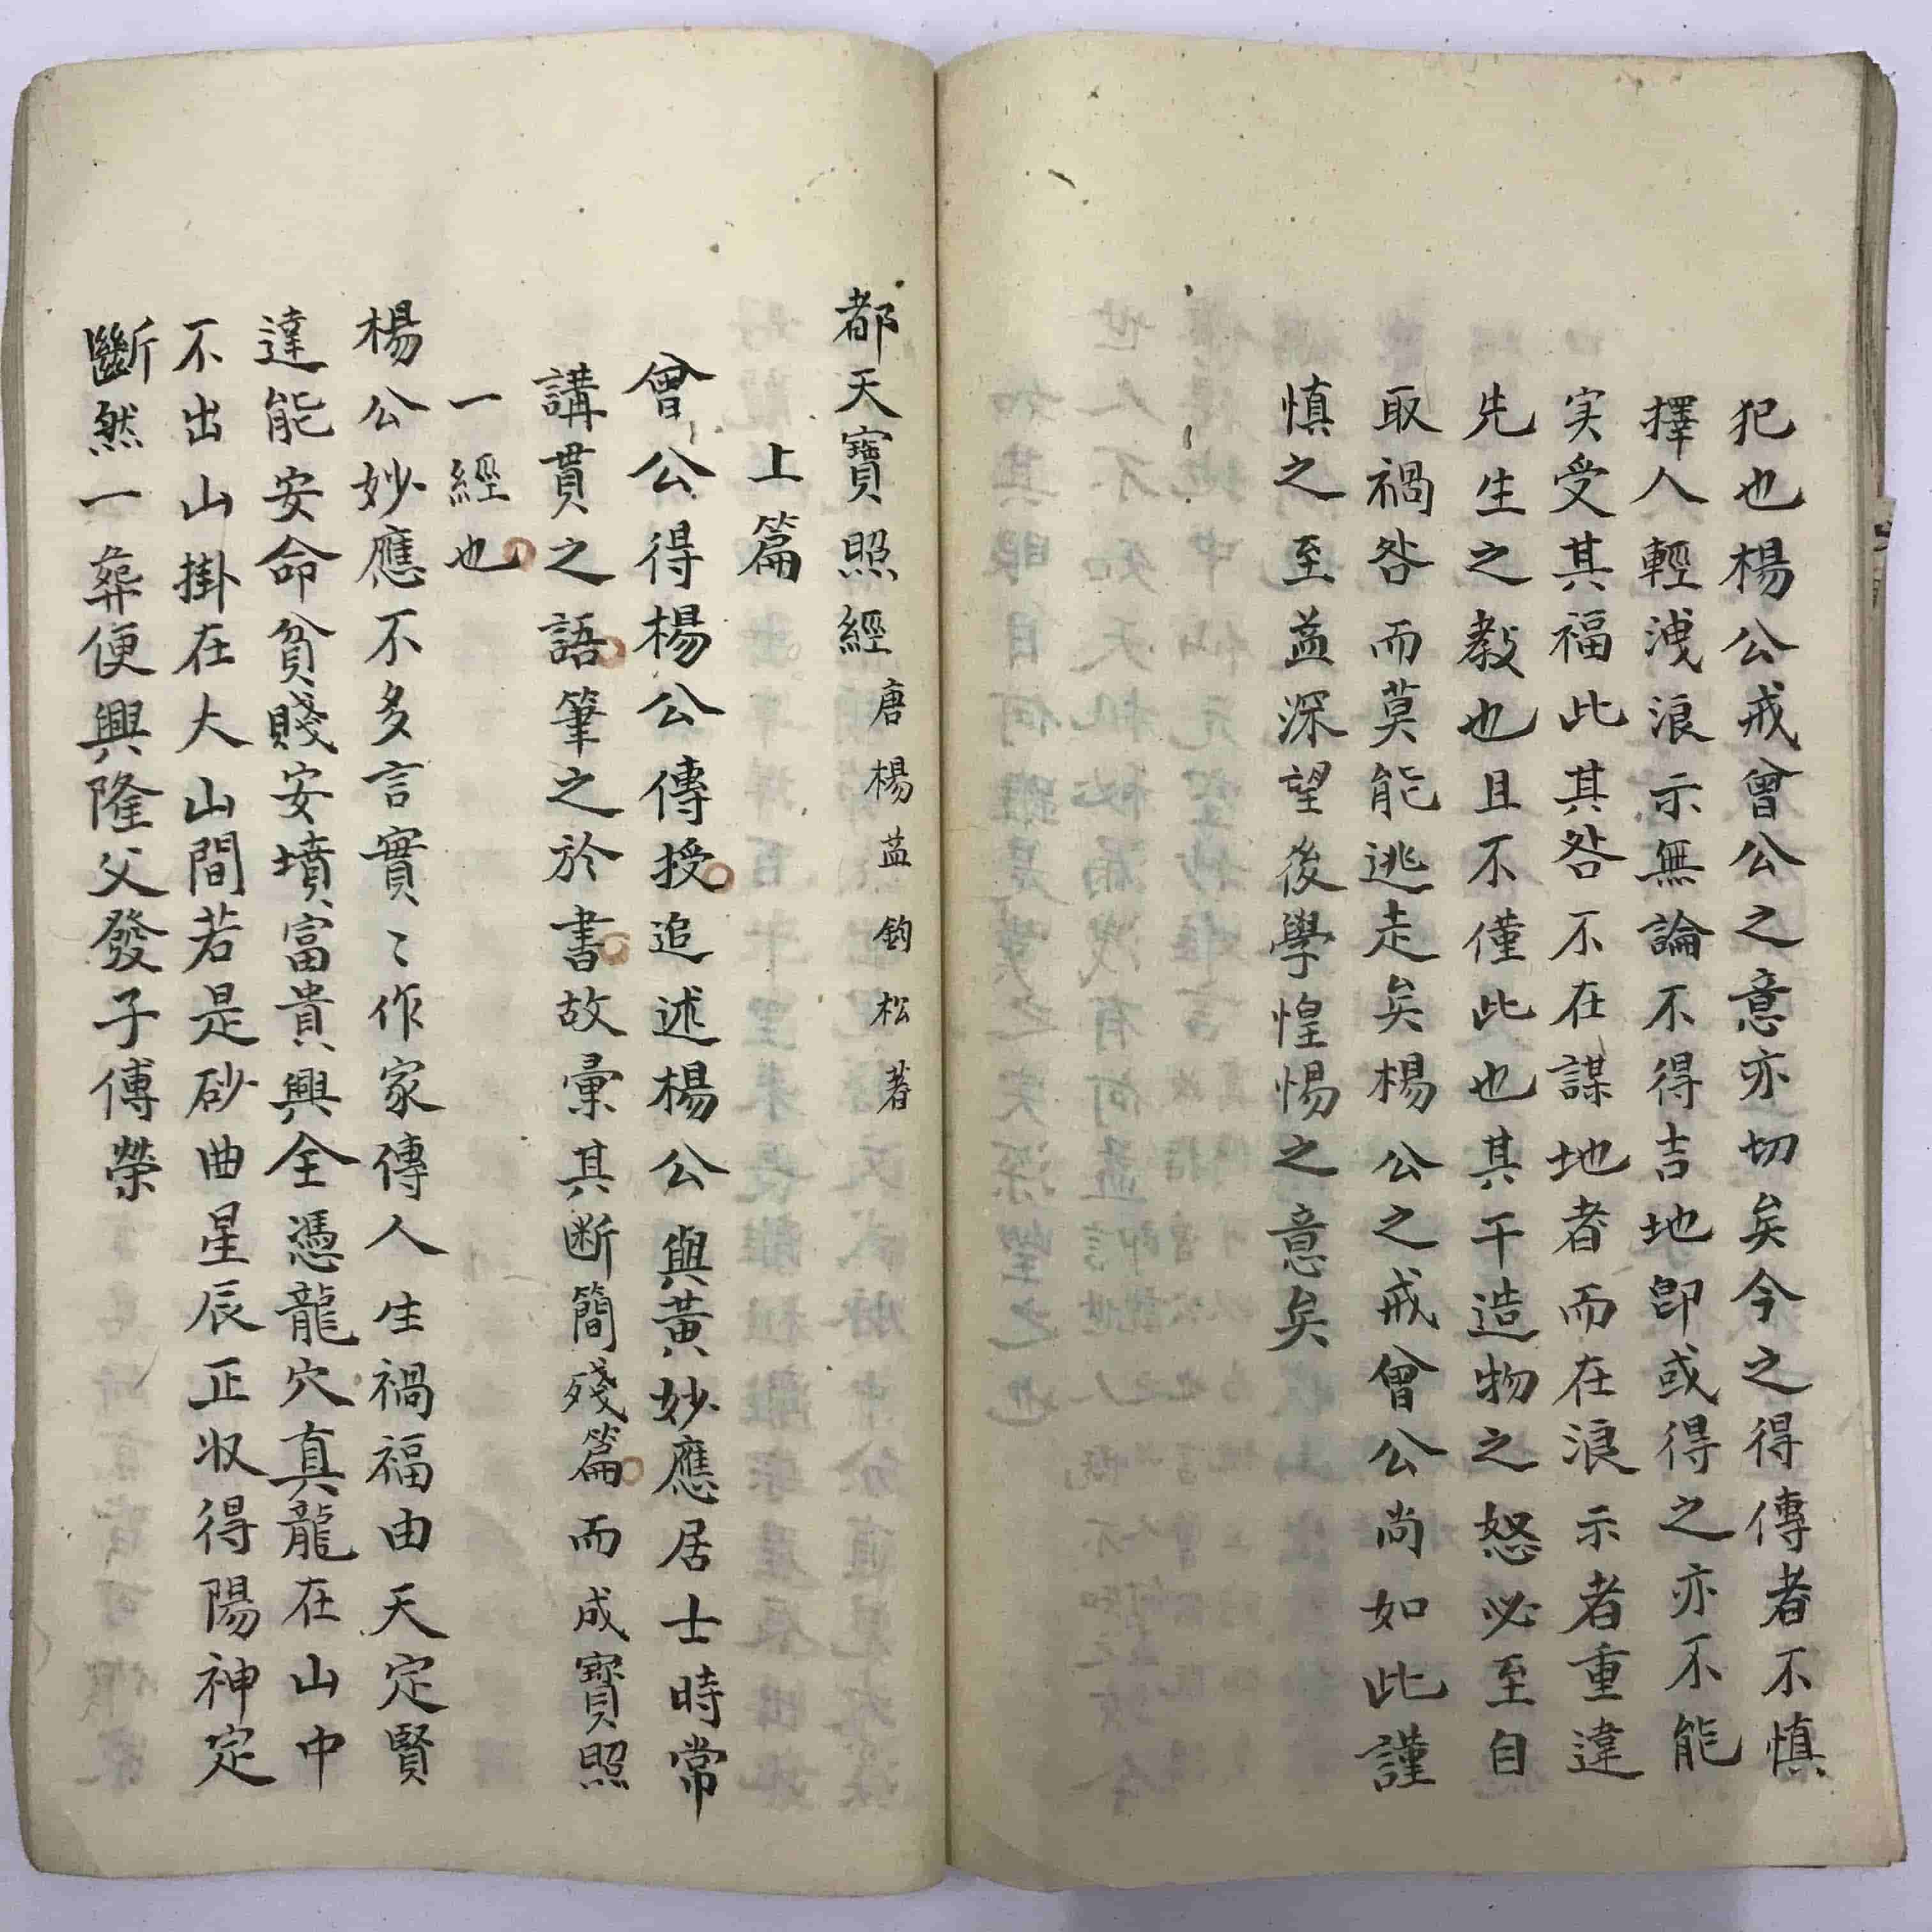 犯也楊公戒曾公之意亦切矣今之得傳者不慎
擇人輕洩浪示無論不得吉地卽或得之亦不能
实受其福此其咎不在謀地者而在浪示者重違
先生之教也且不僅此也其干造物之怒必至自
取禍咎而莫能逃走矣楊公之戒曾公尚如此謹
慎之至盖深望後學惶惕之意矣
都天寶照經 唐楊益鈞松著
上篇
曾公得楊公傳授追述楊公與黃妙應居士時常
講貫之語筆之於書故彙其断簡殘篇而成寶照
一經也
楊公妙應不多言實〻作家傳人生禍福由天定賢
達能安命貧賤安墳富貴興全憑龍穴真龍在山中
不出山掛在大山間若是砂曲星辰正収得陽神定
斷然一葬便興隆父發子傳榮